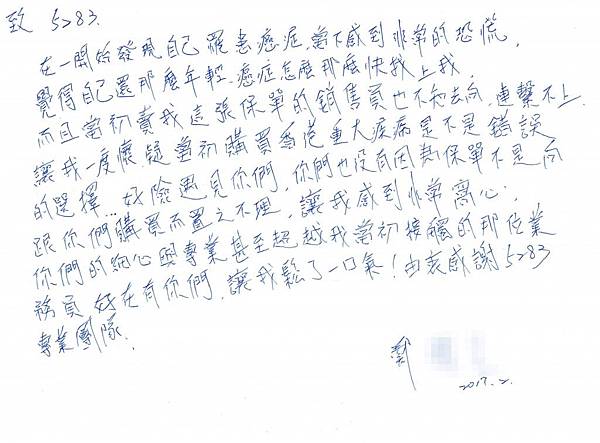 致 5283.
在一開始發現自己罹患癌症,當下感到非常的恐慌,
覺得自己還那麼年輕,癌症怎麼那麼快找上我,
而且當初賣我這張保單的銷售員也不知去向,連繫不上
讓我一度懷疑當初購買香港重大疾病是不是錯誤
的選擇...好險遇見你們,你們也沒有因為保單不是向
跟你們購買而置之不理,讓我感到非常窩心,
你們的細心與專業甚至超越我當初接觸的那位業
務員 好在有你們,讓我鬆了一口氣!由衷感謝5283
專業團隊.
2017.2.